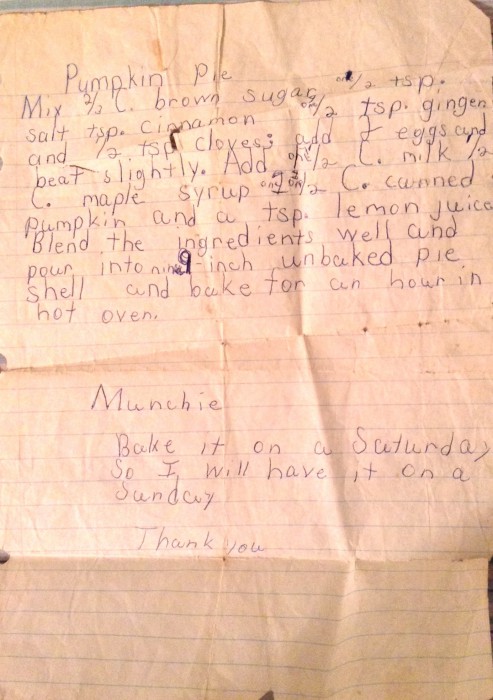 Pumpkin Pie
Mix 2/3 C. brown sugar, one 1/2 tsp.
salt tsp. cinnamon one 1/2 tsp. ginger
and 1/2 tsp cloves; add 2 eggs and
beat slightly. Add one 1/2 C. milk 1/2
C. maple syrup and one 1/2 C. canned
pumpkin and a tsp. lemon juice
Blend the ingredients well and
pour into nine 9-inch unbaked pie
shell and bake for an hour in
hot oven.
Munchie
Bake it on a Saturday
So I will have it on a
Sunday
Thank you